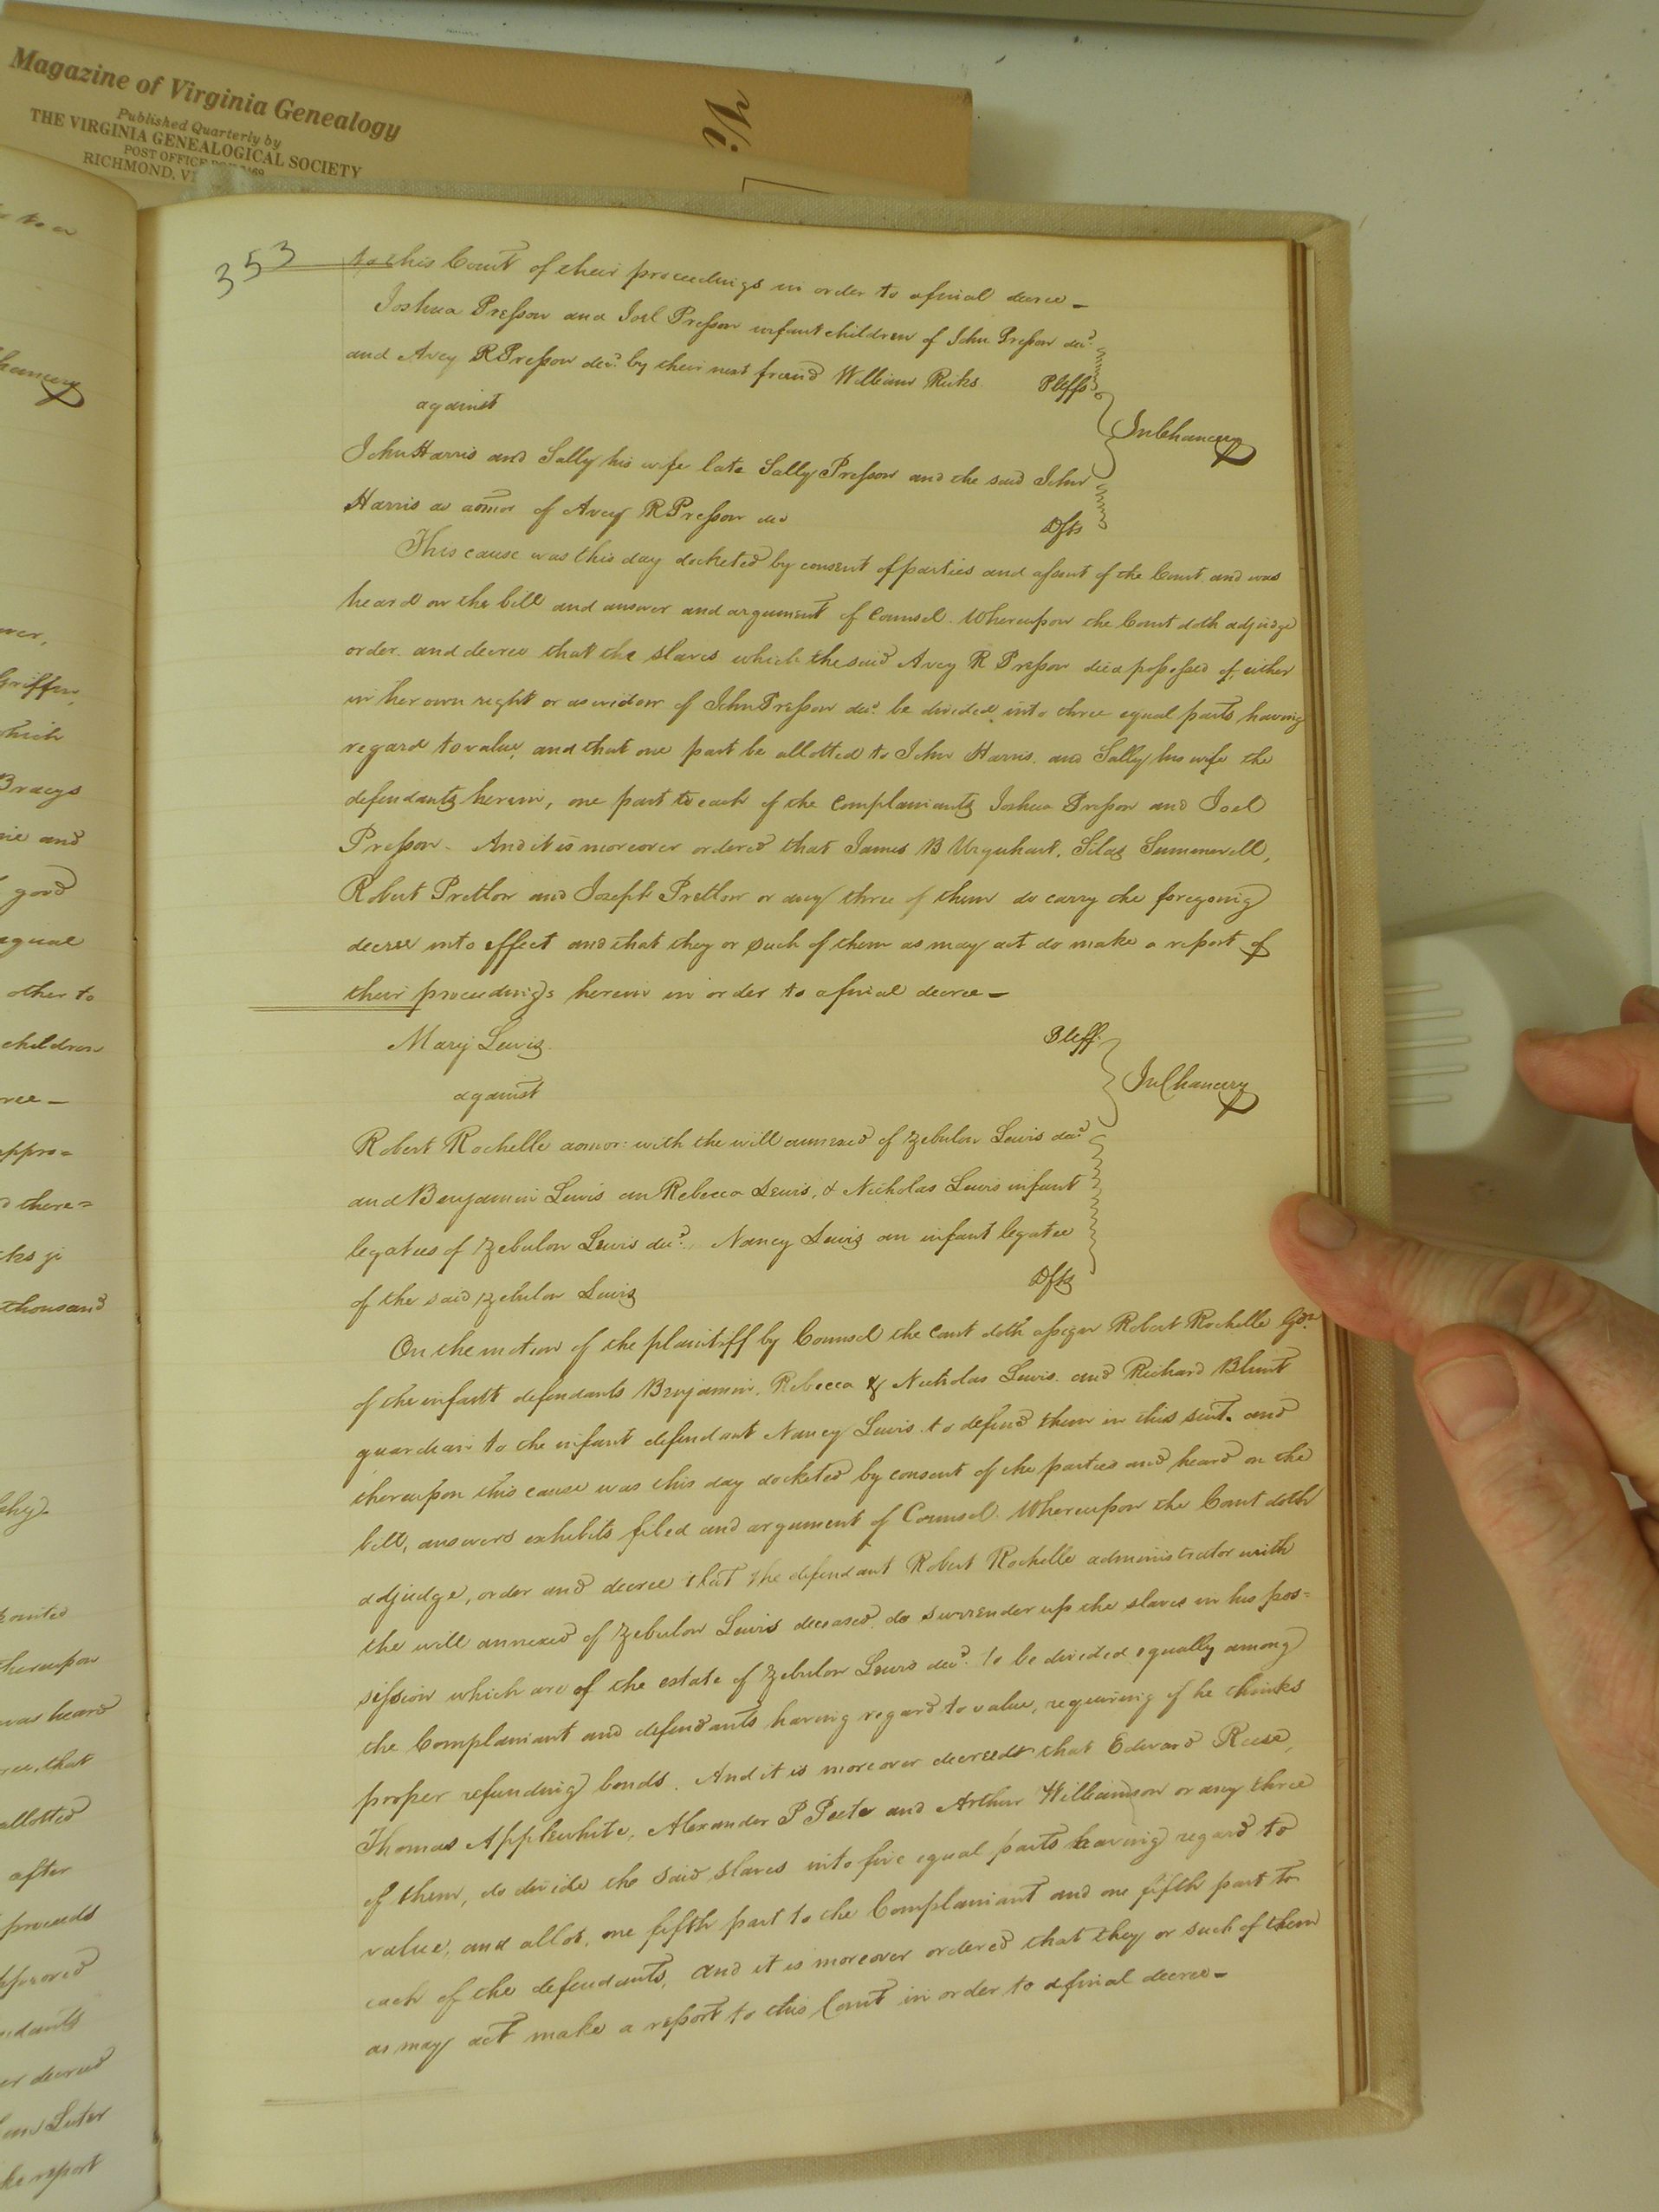 Magazine of Virginia Genealogy
Published Quarterly by
THE VIRGINIA GENEALOGICAL SOCIETY
POST OFFICE
RICHMOND, V
353
to this Court of their proceedings in order to a final decree –
Joshua Presson and Joel Presson infant children of John Presson decd.
and Avey R Presson decd. by their next friend William Ricks. Pltffs
against
In Chancery
John Harris and Sally his wife late Sally Presson and the said John
Harris as admor of Avey R Presson decd
Dfts
This cause was this day docketed by consent of parties and assent of the Court and was
heard on the bill and answer and argument of Counsel. Whereupon the Court doth adjudge
order and decree that the slaves which the said Avey R Presson died possessed of, either
in her own right or as widow of John Presson decd. be divided into three equal parts having
regard to value, and that one part be allotted to John Harris and Sally his wife the
defendants herein, one part to each of the complainants Joshua Presson and Joel
Presson. And it is moreover ordered that James B Urquhart, Silas Summerell,
Robert Pretlow and Joseph Pretlow or any three of them do carry the foregoing
decree into effect and that they or such of them as may act do make a report of
their proceedings herein in order to a final decree –
Mary Lewis Pltff.
against
In Chancery
Robert Rochelle admor: with the will annexed of Zebulon Lewis decd.
and Benjamin Lewis an Rebecca Lewis, & Nicholas Lewis infant
legatees of Zebulon Lewis decd. Nancy Lewis an infant legatee
of the said Zebulon Lewis Dfts
On the motion of the plaintiff by Counsel the court doth assign Robert Rochelle Gdn.
of the infant defendants Benjamin, Rebecca & Nicholas Lewis and Richard Blunt
guardian to the infant defendant Nancy Lewis to defend them in this suit. and
thereupon this cause was this day docketed by consent of the parties and heard on the
bill, answers exhibits filed and argument of Counsel. Whereupon the Court doth
adjudge, order and decree that the defendant Robert Rochelle administrator with
the will annexed of Zebulon Lewis deceased, do surrender up the slaves in his pos=
session which are of the estate of Zebulon Lewis decd. to be divided equally among
the Complainant and defendants having regard to value, requiring if he thinks
proper refunding bonds. And it is moreover decreed that Edward Reese,
Thomas Applewhite, Alexander P Peete and Arthur Williamson or any three
of them, do divide the said slaves into five equal parts having regard to
value, and allot, one fifth part to the Complainant and one fifth part to
each of the defendants, and it is moreover ordered that they or such of them
as may act make a report to this Court in order to a final decree –
to a
Chancery
Griffin,
which
Bracys
and
good
equal
other to
children
appro=
there=
thousand
thereupon
was heard
that
allotted
after
proceeds
approved
decreed
report